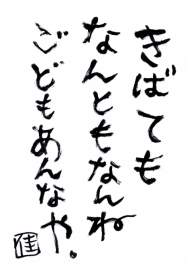 きばても
なんともなんね
ごどもあんなや。
佳